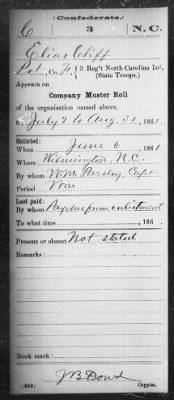 Confederate.
C 3 N.C.
Elias Cliff
Pvt., Co. F, 3 Reg't North Carolina Inf.
(State Troops.)
Appears on
Company Muster Roll
of the organization named above,
for July 2 to Aug. 31, 1861.
Enlisted:
When June 6, 1861
Where Wilmington, N.C.
By whom W.M. Parsley, Capt
Period War
Last paid:
By whom Pay due from enlistment
To what time , 186 .
Present or absent Not stated
Remarks:
Book mark:
J B Dowd
(642) Copyist.